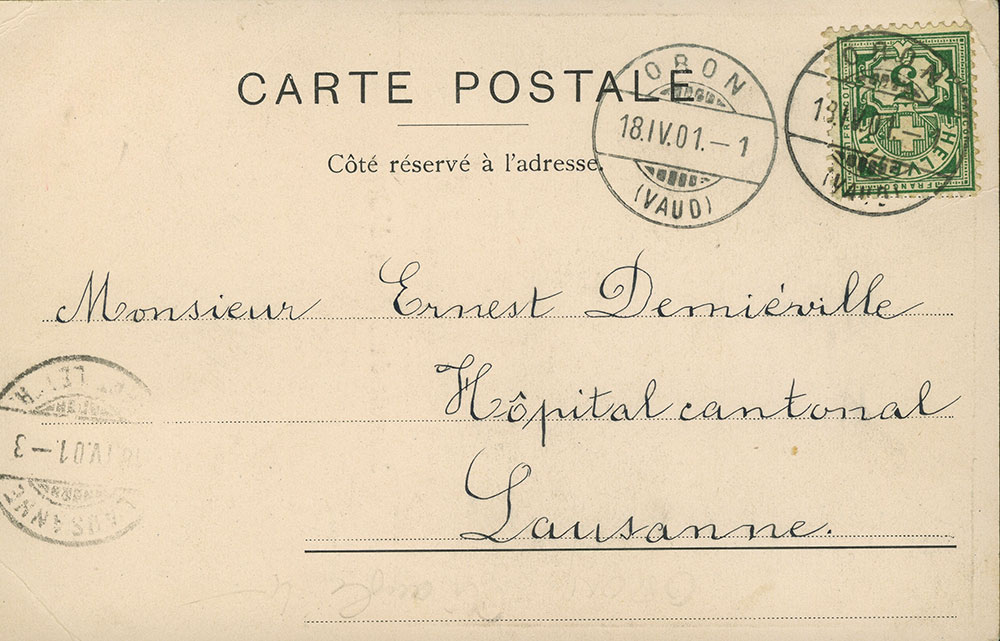 CARTE POSTALE
Côté réservé à l'adresse.
ORON
18.IV.01.–1
(VAUD)
ORON
18.IV.01.
(VAUD)
5
HELVETIA
FRANCO
Monsieur Ernest Demiéville
Hôpital cantonal
Lausanne.
18.IV.01.–3
LAUSANNE